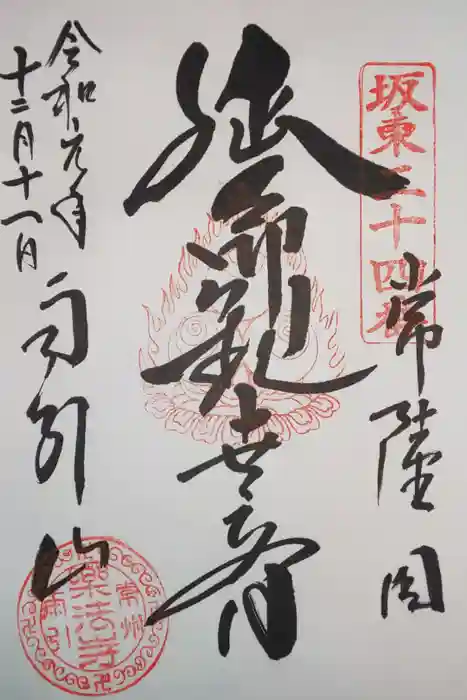 坂東二十四番
常陸国
延命観世音
令和元年
十二月十一日
雨引山
常州
樂法寺
雨引